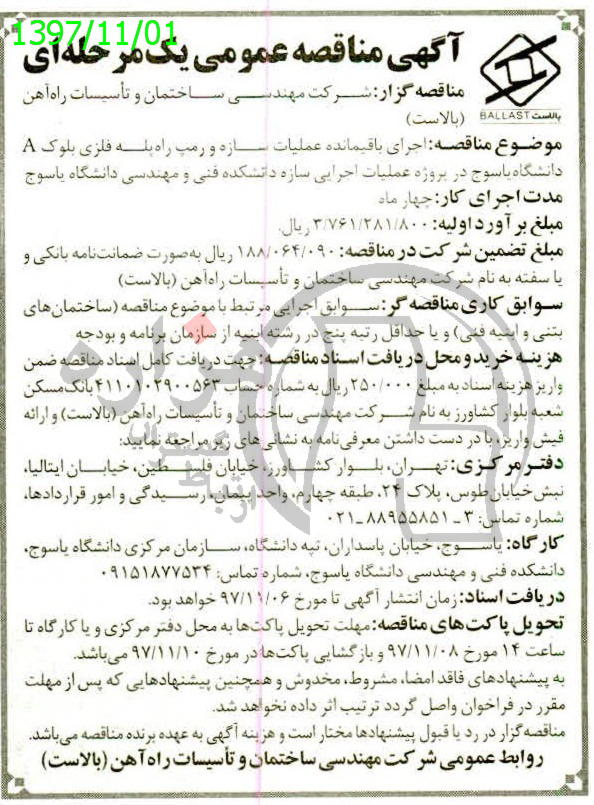 1397/11/01
آگهی مناقصه عمومی یک مرحله‌ای
بالاست BALLAST
مناقصه گزار: شرکت مهندسی ساختمان و تأسیسات راه‌آهن
(بالاست)
موضوع مناقصه: اجرای باقیمانده عملیات سازه و رمپ راه‌پله فلزی بلوک A
دانشگاه یاسوج در پروژه عملیات اجرایی سازه دانشکده فنی و مهندسی دانشگاه یاسوج
مدت اجرای کار: چهار ماه
مبلغ برآورد اولیه: ۳/۷۶۱/۲۸۱/۸۰۰ ریال.
مبلغ تضمین شرکت در مناقصه: ۱۸۸/۰۶۴/۰۹۰ ریال به‌صورت ضمانت‌نامه بانکی و
یا سفته به نام شرکت مهندسی ساختمان و تأسیسات راه‌آهن (بالاست)
سوابق کاری مناقصه گر: سوابق اجرایی مرتبط با موضوع مناقصه (ساختمان‌های
بتنی و ابنیه فنی) و یا حداقل رتبه پنج در رشته ابنیه از سازمان برنامه و بودجه
هزینه خرید و محل دریافت اسناد مناقصه: جهت دریافت کامل اسناد مناقصه ضمن
واریز هزینه اسناد به مبلغ ۲۵۰/۰۰۰ ریال به شماره حساب ۴۱۱۰۱۰۲۹۰۰۵۶۳ بانک مسکن
شعبه بلوار کشاورز به نام شرکت مهندسی ساختمان و تأسیسات راه‌آهن (بالاست) و ارائه
فیش واریز، با در دست داشتن معرفی‌نامه به نشانی‌های زیر مراجعه نمایید:
دفتر مرکزی: تهران، بلوار کشاورز، خیابان فلسطین، خیابان ایتالیا،
نبش خیابان طوس، پلاک ۲۴، طبقه چهارم، واحد پیمان، رسیدگی و امور قراردادها،
شماره تماس: ۳ـ۸۸۹۵۵۸۵۱ـ۰۲۱
کارگاه: یاسوج، خیابان پاسداران، تپه دانشگاه، سازمان مرکزی دانشگاه یاسوج،
دانشکده فنی و مهندسی دانشگاه یاسوج، شماره تماس: ۰۹۱۵۱۸۷۷۵۳۴
دریافت اسناد: زمان انتشار آگهی تا مورخ ۹۷/۱۱/۰۶ خواهد بود.
تحویل پاکت‌های مناقصه: مهلت تحویل پاکت‌ها به محل دفتر مرکزی و یا کارگاه تا
ساعت ۱۴ مورخ ۹۷/۱۱/۰۸ و بازگشایی پاکت‌ها در مورخ ۹۷/۱۱/۱۰ می‌باشد.
به پیشنهادهای فاقد امضا، مشروط، مخدوش و همچنین پیشنهادهایی که پس از مهلت
مقرر در فراخوان واصل گردد ترتیب اثر داده نخواهد شد.
مناقصه‌گزار در رد یا قبول پیشنهادها مختار است و هزینه آگهی به عهده برنده مناقصه می‌باشد.
روابط عمومی شرکت مهندسی ساختمان و تأسیسات راه‌آهن (بالاست)